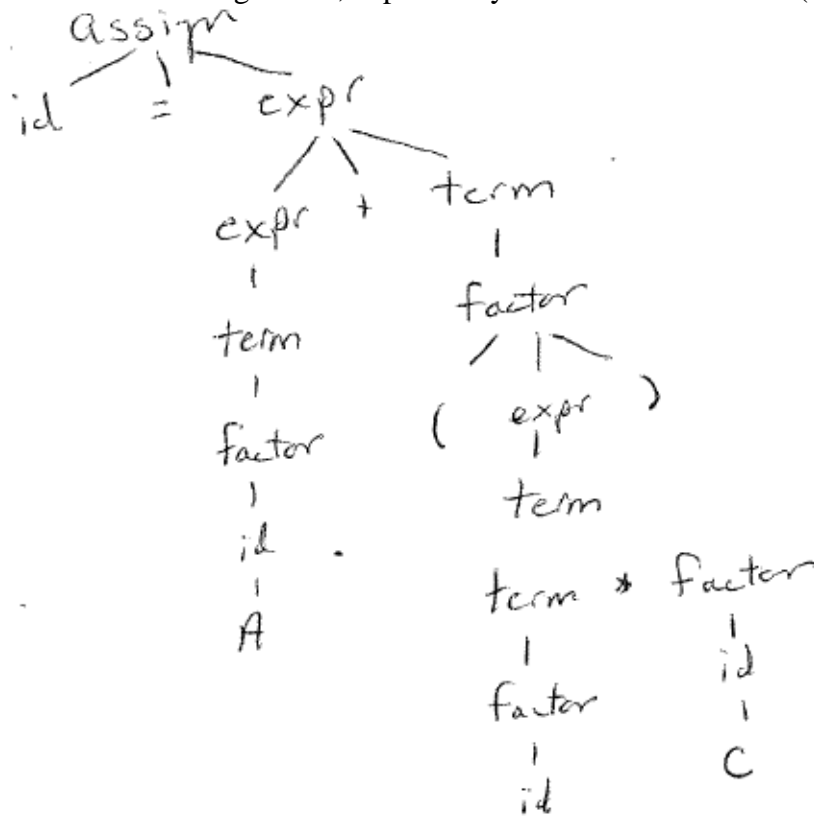 assign
id = expr
expr + term
term factor
factor ( expr )
id term
A term * factor
factor id
id C